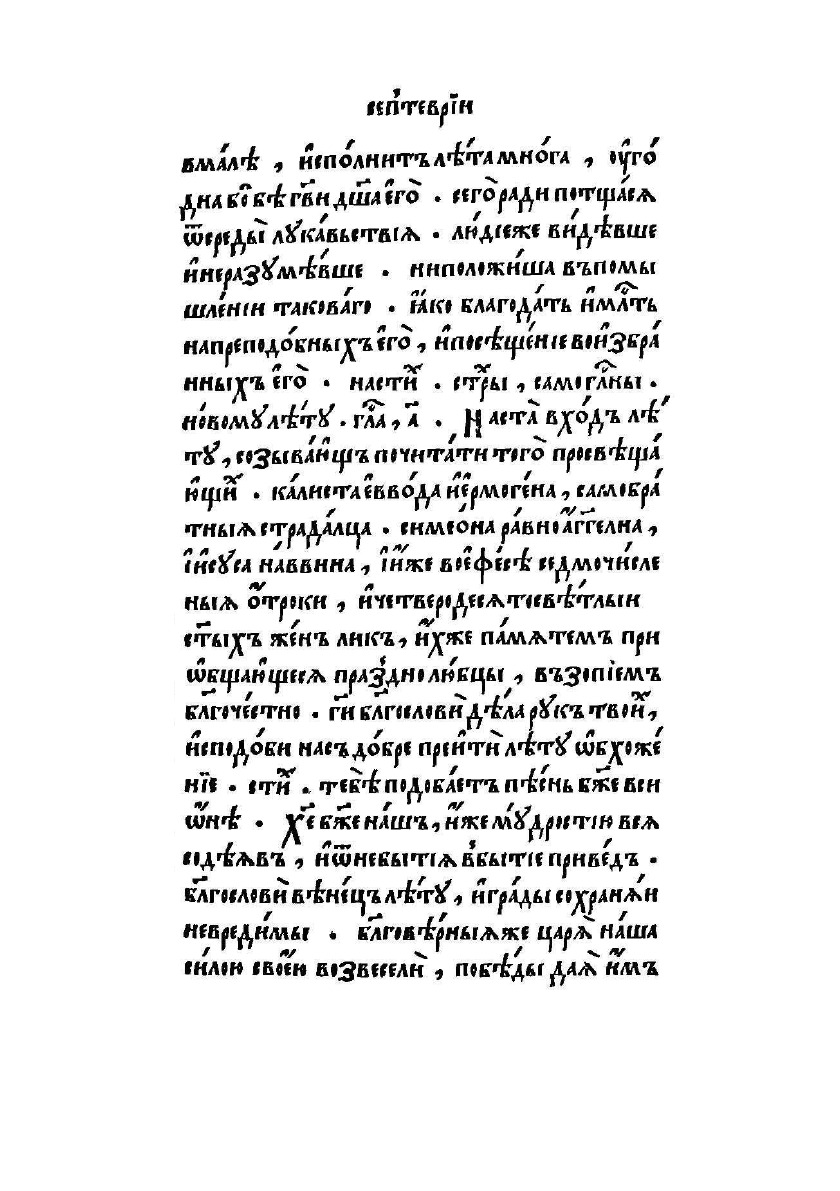 сеп҆те́врїи
вма́лѣ , и҆спо́лнитъ лѣ́та мно́га , оу҆го́
дна бо̀ бѣ̀ гв҃и дш҃а е҆го̀ . сего̀ ради потща́сѧ
ѿ среды̀ лука́вьствїѧ . лю́дїе же ви́дѣвше
и҆ не разꙋмѣ́вше . ни положи́ша въ помы
шле́нїи такова́го . ꙗ҆́ко благода́ть и҆ мл҇ть
на преподо́бныхъ е҆го̀ , и҆ посѣще́нїе во и҆збра́
нныхъ е҆го̀ . на сти́х . ст҃ры , самогла́сны .
но́вому лѣ́ту . гла́ , а҃ . Наста̀ вхо́дъ лѣ́
ту , созыва́ющъ почита́ти того̀ просвѣща́
ющи́х . ка́листа е҆вво́да и҆ е҆рмоге́на , самобра́
тныѧ страда́лца . симео́на ра́вноа҆гг҃елна ,
і҆исуса на́ввина , і҆ и҆́же во е҆фе́сѣ седмочи́сле
ныѧ о҆́троки , и҆ четвередесѧтосвѣ́тлыи
ст҃ыхъ же́нъ ликъ , и҆́хже па́мѧтемъ при
ѡ҆бща́ющесѧ пра́зднолю́бцы , възопїе́мъ
бл҃гоче́стно . гп҃и бл҃гословѝ дѣ́ла рукъ твои́х ,
и҆ сподо́би насъ до́бре преитѝ лѣ́ту ѡ҆бхоже́
нїе . сти́х . тебѣ̀ подоба́етъ пѣ́снь бж҃е в сио́
ѡ҆нѣ . Хс҃е бж҃е на́шъ , и҆́же мꙋ́дростїю всѧ̀
содѣ́ѧвъ , и҆ ѿ небытїѧ̀ в бытїе приве́дъ .
бл҃гословѝ вѣне́цъ лѣ́ту , и҆ гра́ды сохранѧ́и
невреди́мы . бл҃говѣ́рныѧ же царѧ̀ на́ша
си́лою свое́ю возвеселѝ , побѣ́ды даѧ̀ и҆̀мъ